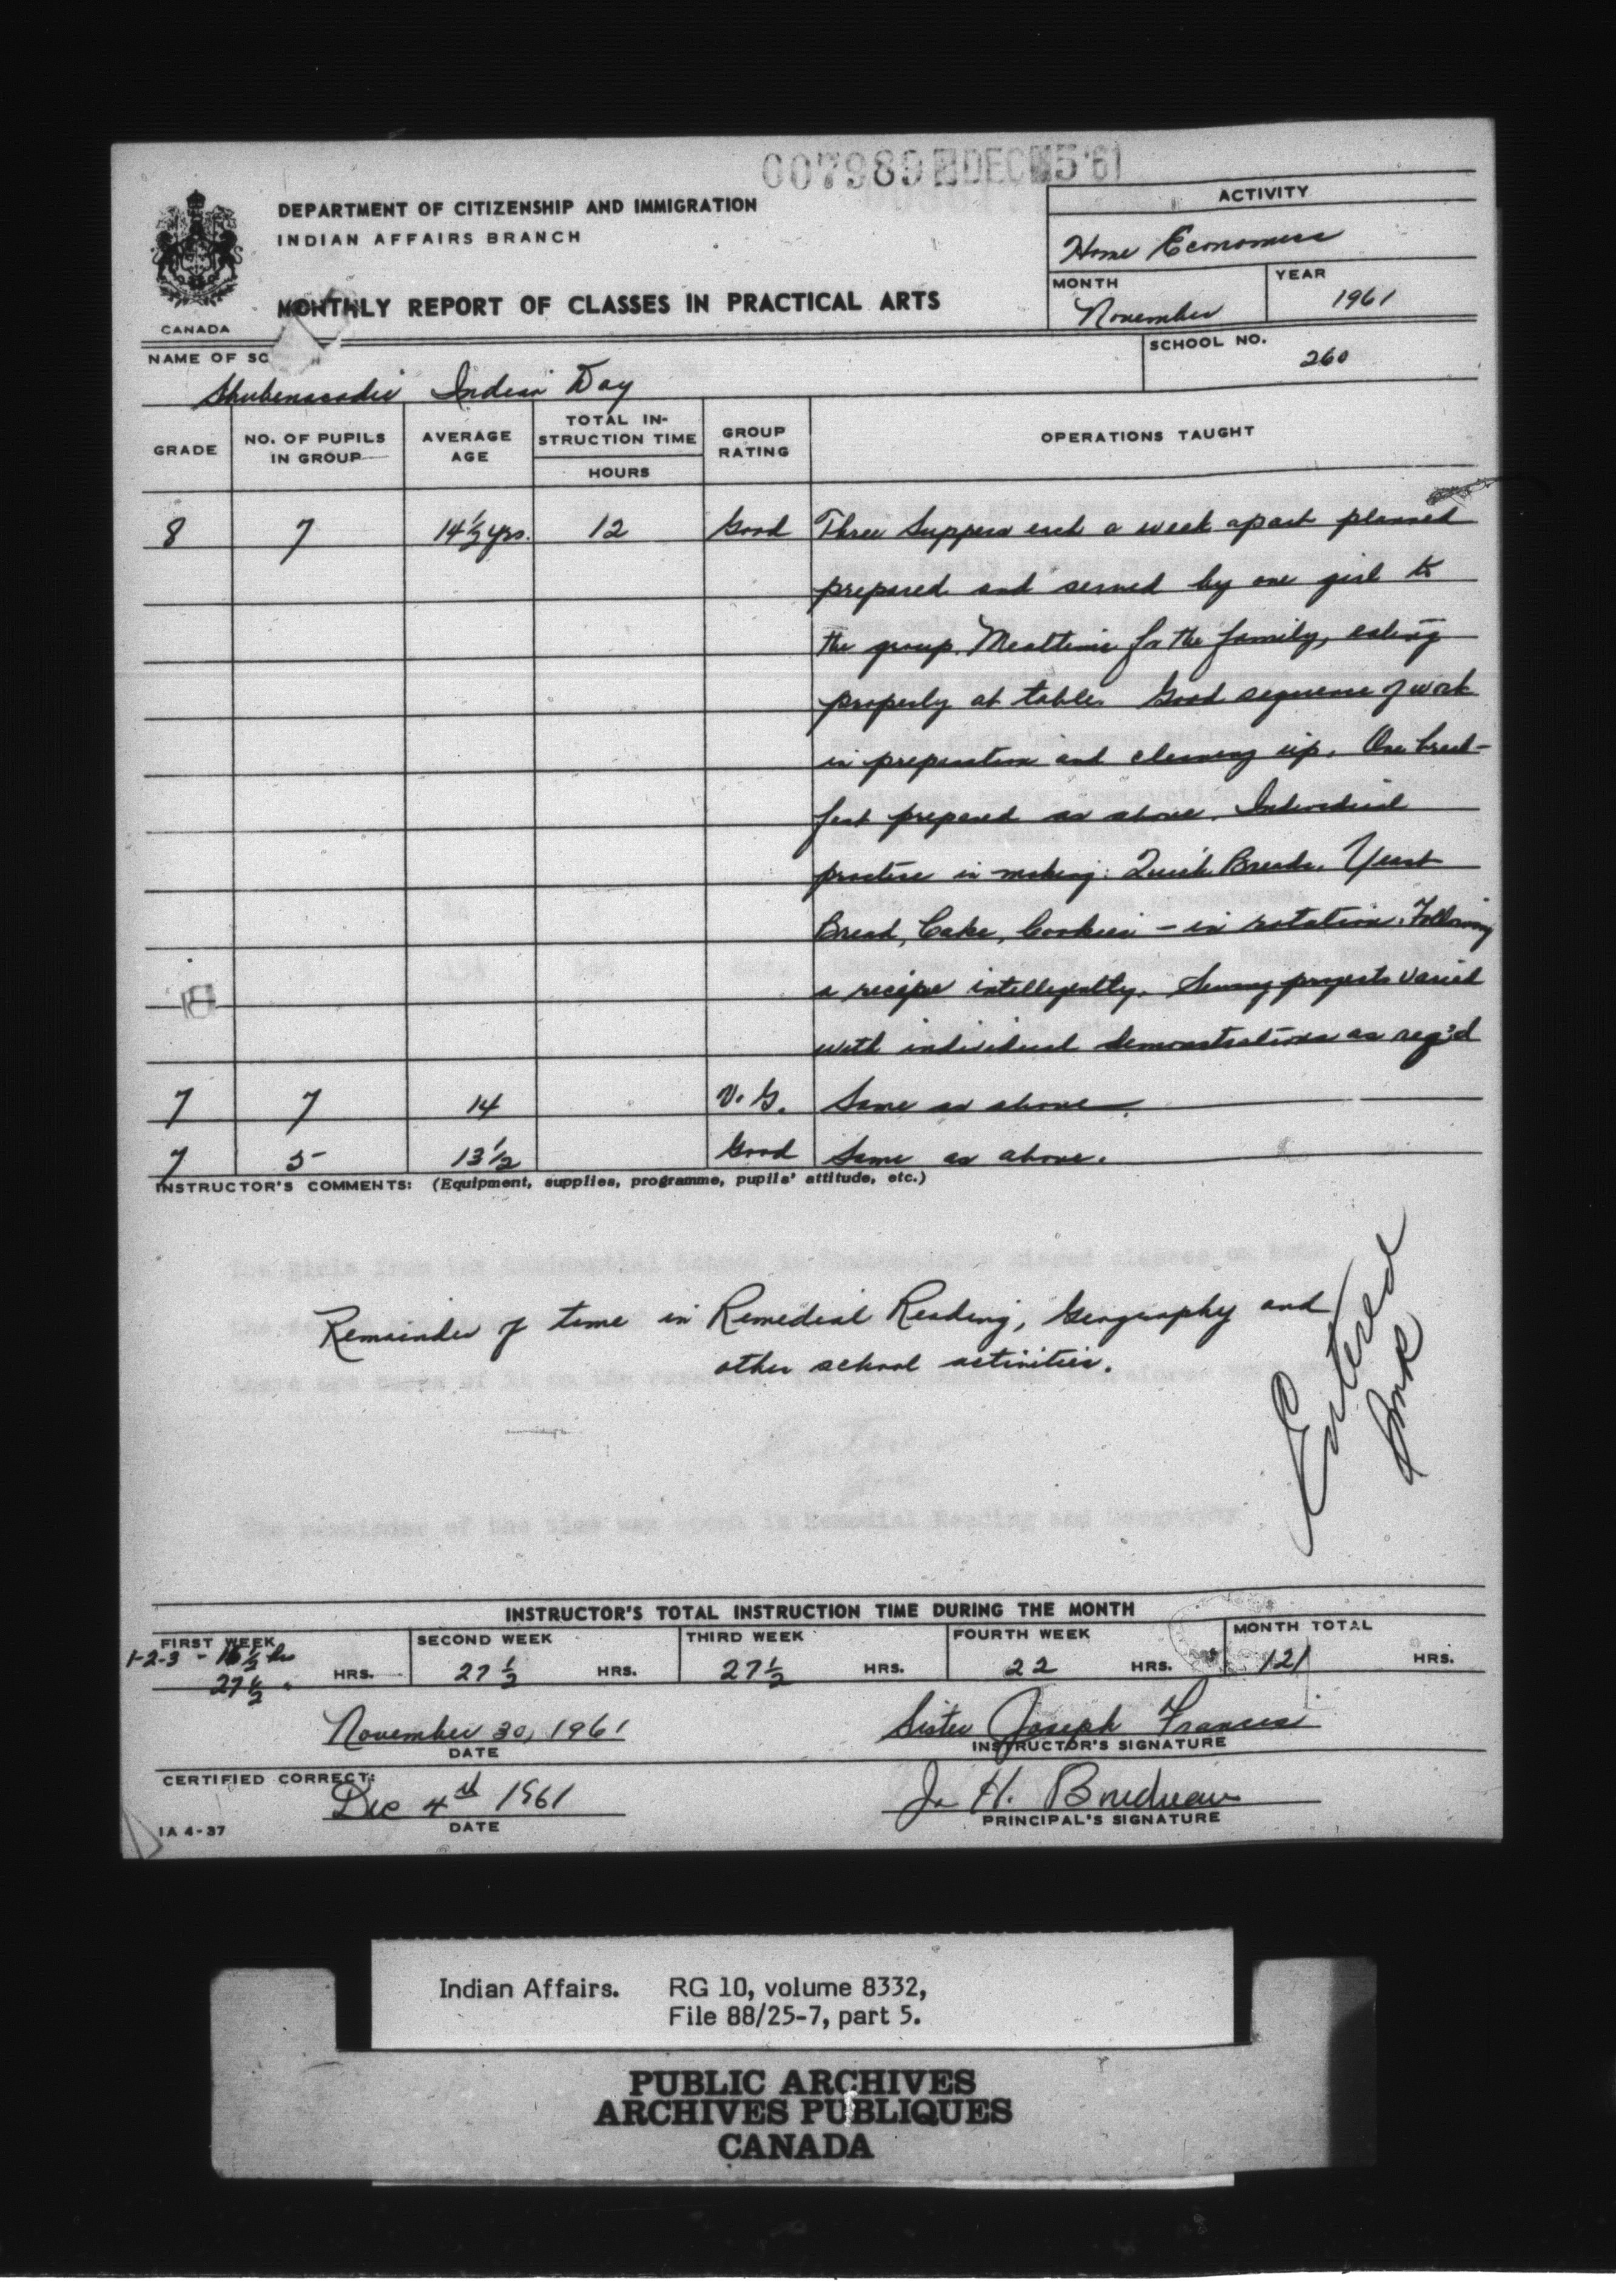 007989 DEC 5 '61
DEPARTMENT OF CITIZENSHIP AND IMMIGRATION
INDIAN AFFAIRS BRANCH
MONTHLY REPORT OF CLASSES IN PRACTICAL ARTS
CANADA
ACTIVITY
Home Economics
MONTH
November
YEAR
1961
NAME OF SC
Shubenacadie Indian Day
SCHOOL NO.
260
GRADE NO. OF PUPILS IN GROUP AVERAGE AGE TOTAL INSTRUCTION TIME HOURS GROUP RATING OPERATIONS TAUGHT
8 7 14½ yrs. 12 Good Three Suppers each a week apart planned
prepared and served by one girl to
the group. Mealtime for the family, eating
properly at table. Good sequence of work
in preparation and cleaning up. One break-
fast prepared as above. Individual
practice in making: Quick Breads, Yeast
Bread, Cake, Cookies - in rotation. Following
a recipe intelligently. Sewing projects varied
with individual demonstrations as req'd
7 7 14 V.G. Same as above.
7 5 13½ Good Same as above.
INSTRUCTOR'S COMMENTS: (Equipment, supplies, programme, pupils' attitude, etc.)
Remainder of time in Remedial Reading, Geography and
other school activities.
Entered
INSTRUCTOR'S TOTAL INSTRUCTION TIME DURING THE MONTH
FIRST WEEK SECOND WEEK THIRD WEEK FOURTH WEEK MONTH TOTAL
1-2-3 - 16½ hrs
27½ HRS. 27½ HRS. 27½ HRS. 22 HRS. 121 HRS.
November 30, 1961 Sister Joseph Francis
DATE INSTRUCTOR'S SIGNATURE
CERTIFIED CORRECT:
Dec 4th 1961 J. H. Boudreau
DATE PRINCIPAL'S SIGNATURE
IA 4-37
Indian Affairs. RG 10, volume 8332,
File 88/25-7, part 5.
PUBLIC ARCHIVES
ARCHIVES PUBLIQUES
CANADA